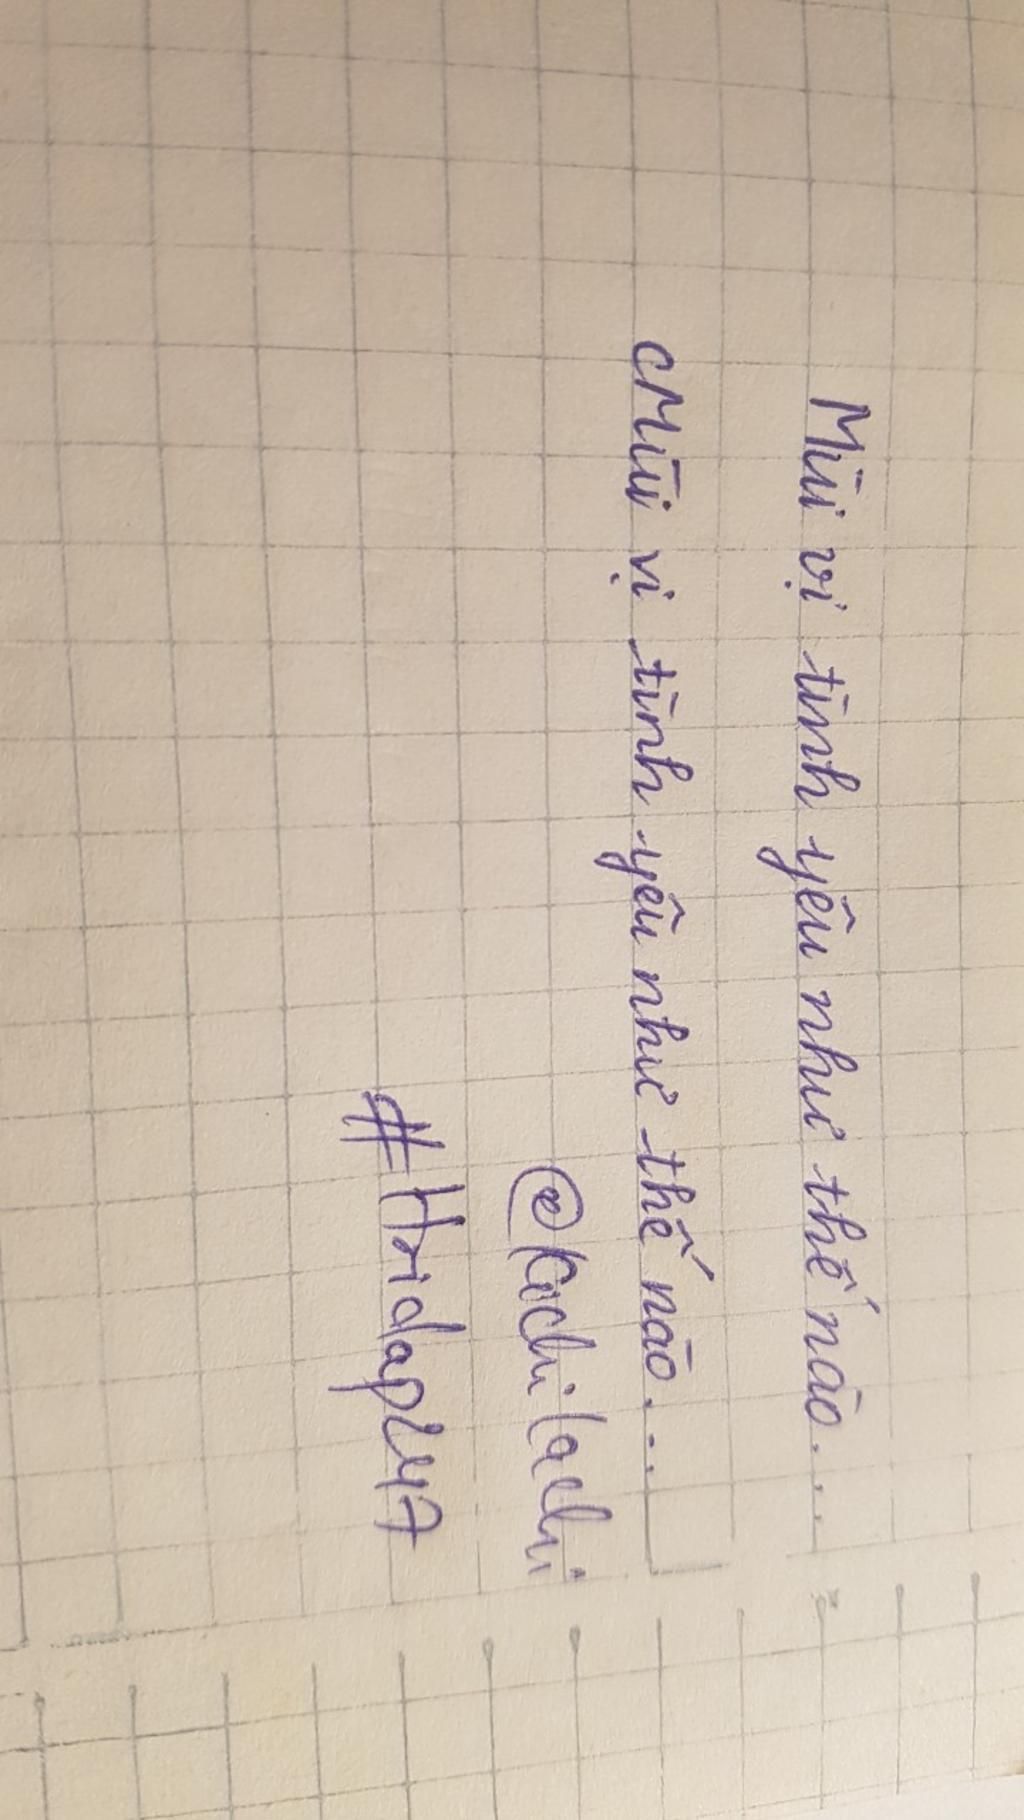 Mùi vị tình yêu như thế nào...
Mùi vị tình yêu như thế nào...
@kochilachi
#Hridap247